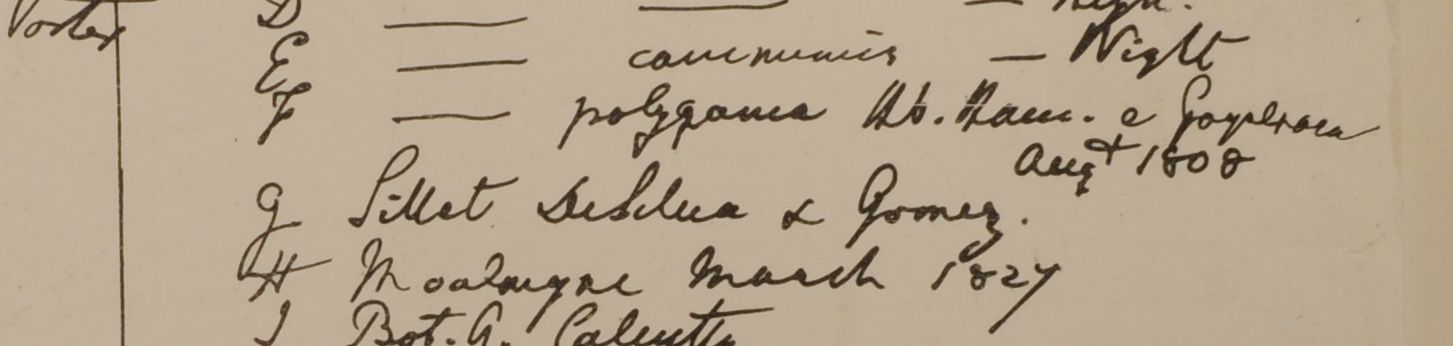 Porter D — — — Wight.
E — communis — Wight
F — polygama Hb. Ham. e Goyalpara
Augt 1808
G Sillet DeSilva & Gomez.
H Moalmyne March 1827
I Bot. G. Calcutta